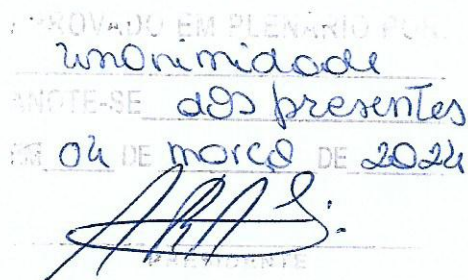 APROVADO EM PLENÁRIO POR
unanimidade
ANOTE-SE dos presentes
EM 04 DE março DE 2024
PRESIDENTE